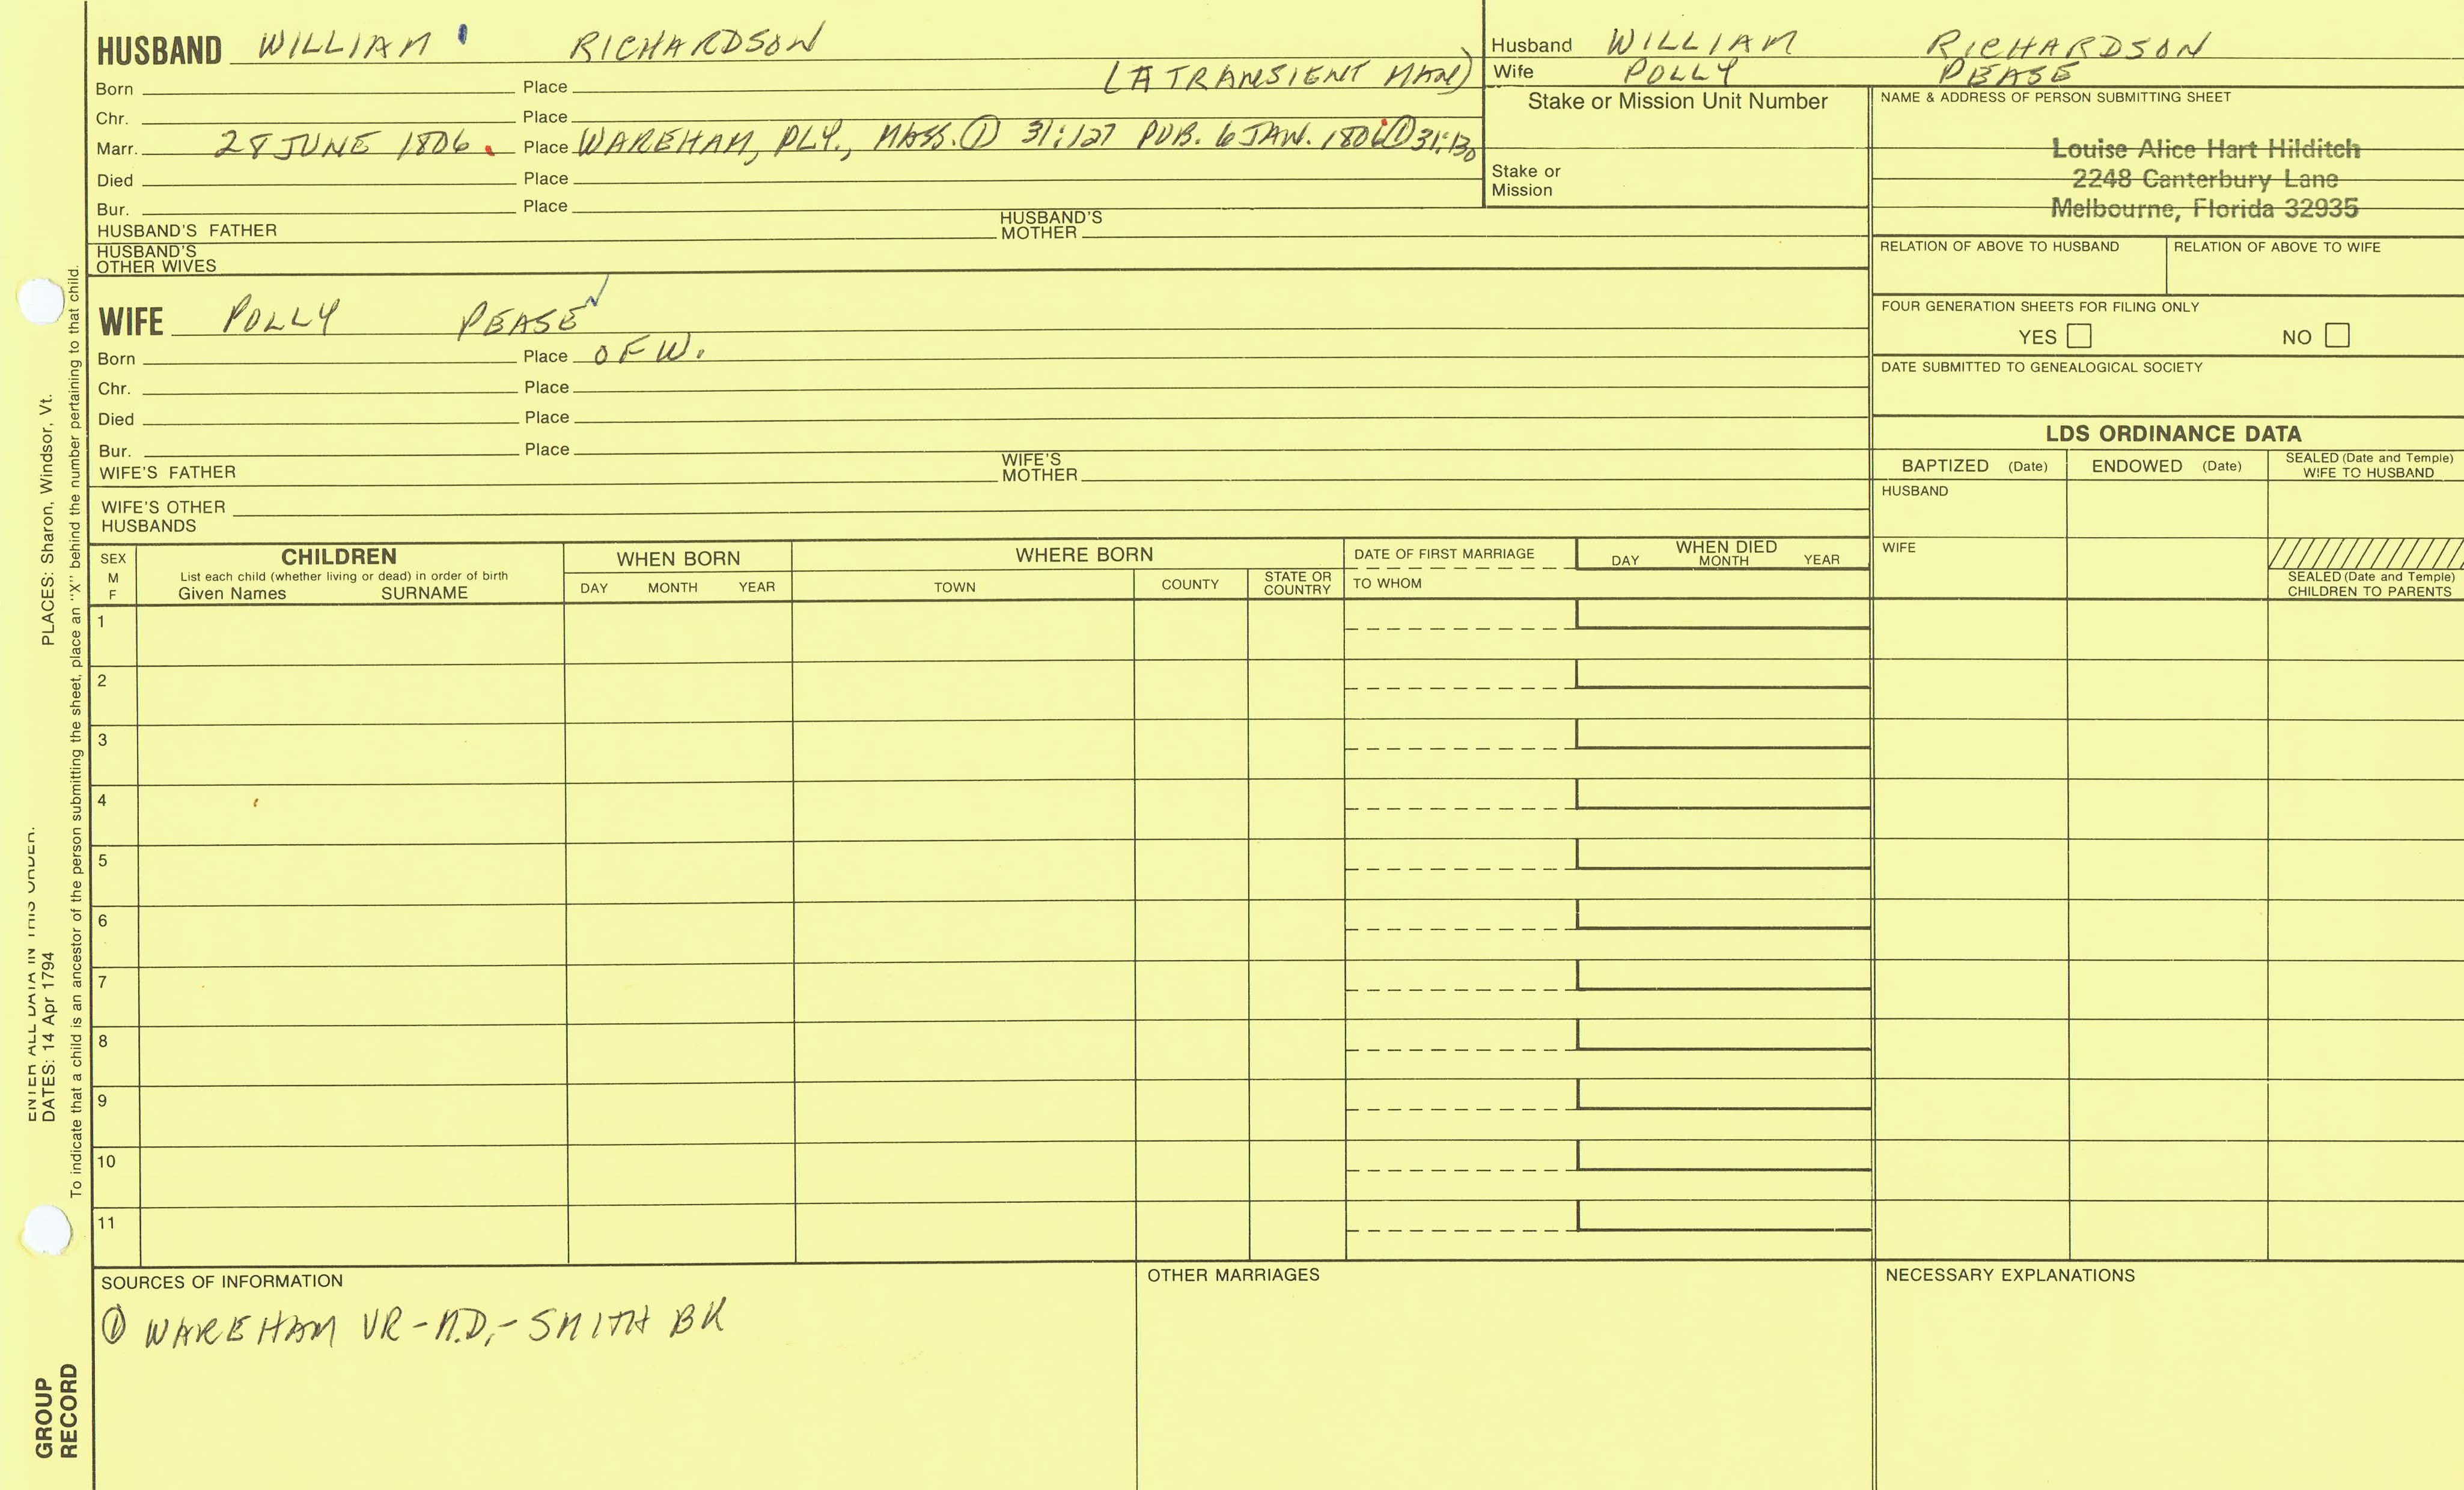 HUSBAND WILLIAM RICHARDSON
(A TRANSIENT MAN)
Born Place
Chr. Place
Marr. 28 JUNE 1806. Place WAREHAM, PLY., MASS. ① 31:127 PUB. 6 JAN. 1806 ① 31:130
Died Place
Bur. Place
HUSBAND'S FATHER HUSBAND'S MOTHER
HUSBAND'S OTHER WIVES
WIFE POLLY PEASE
Born Place OF W.
Chr. Place
Died Place
Bur. Place
WIFE'S FATHER WIFE'S MOTHER
WIFE'S OTHER HUSBANDS
Husband WILLIAM RICHARDSON
Wife POLLY PEASE
Stake or Mission Unit Number
Stake or Mission
NAME & ADDRESS OF PERSON SUBMITTING SHEET
Louise Alice Hart Hilditch
2248 Canterbury Lane
Melbourne, Florida 32935
RELATION OF ABOVE TO HUSBAND RELATION OF ABOVE TO WIFE
FOUR GENERATION SHEETS FOR FILING ONLY
YES NO
DATE SUBMITTED TO GENEALOGICAL SOCIETY
LDS ORDINANCE DATA
BAPTIZED (Date) ENDOWED (Date) SEALED (Date and Temple) WIFE TO HUSBAND
HUSBAND
WIFE
SEALED (Date and Temple) CHILDREN TO PARENTS
SEX M F
CHILDREN
List each child (whether living or dead) in order of birth
Given Names SURNAME
WHEN BORN
DAY MONTH YEAR
WHERE BORN
TOWN COUNTY STATE OR COUNTRY
DATE OF FIRST MARRIAGE
TO WHOM
WHEN DIED
DAY MONTH YEAR
1
2
3
4
5
6
7
8
9
10
11
SOURCES OF INFORMATION
① WAREHAM VR-M.D,-SMITH BK
OTHER MARRIAGES
NECESSARY EXPLANATIONS
ENTER ALL DATA IN THIS ORDER.
DATES: 14 Apr 1794 PLACES: Sharon, Windsor, Vt.
To indicate that a child is an ancestor of the person submitting the sheet, place an "X" behind the number pertaining to that child.
GROUP
RECORD